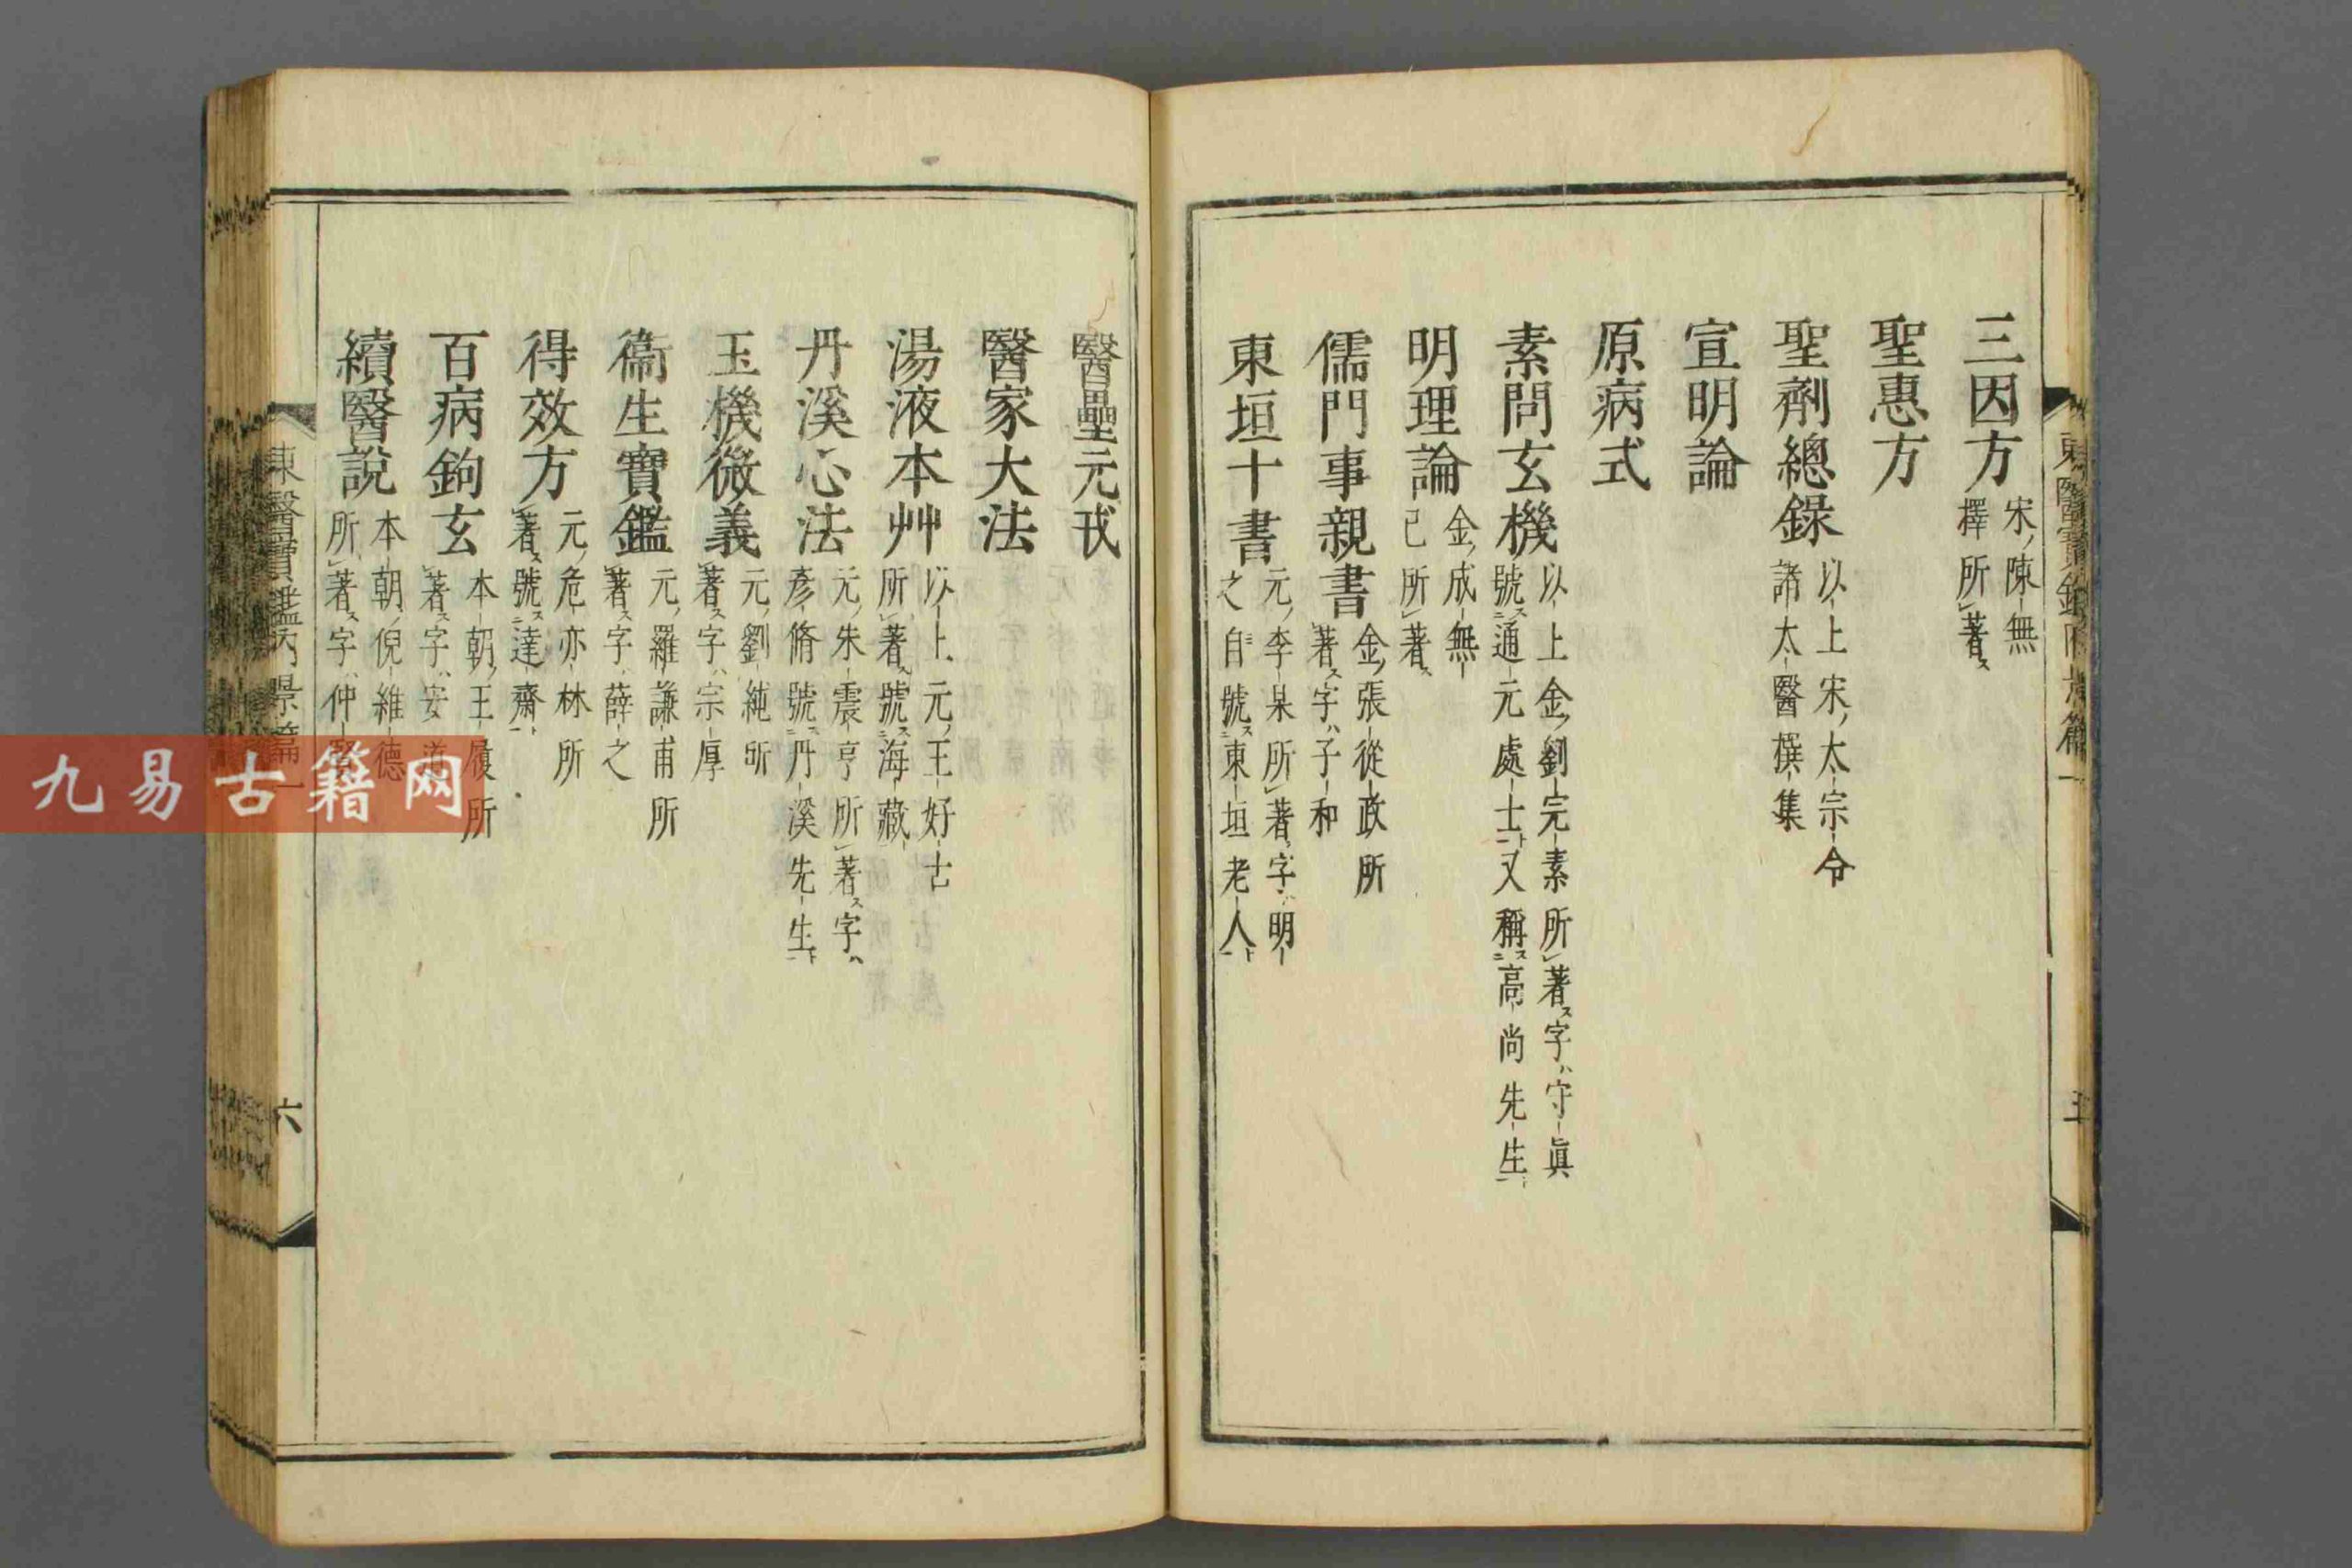 三因方 宋ノ陳無擇所著ス
聖惠方
聖劑總錄 以上宋ノ太宗令諸太醫撰集
宣明論
原病式
素問玄機 以上金ノ劉完素所著ス字ハ守眞號ス通元處士ト又稱ス高尚先生ト
明理論 金ノ成無已所著ス
儒門事親書 金ノ張從政所著ス字ハ子和
東垣十書 元ノ李杲所著ス字ハ明之自號ス東垣老人ト
醫壘元戎
醫家大法
湯液本艸 以上元ノ王好古所著ス號ス海藏
丹溪心法 元ノ朱震亨所著ス字ハ彥脩號ス丹溪先生ト
玉機微義 元ノ劉純所著ス字ハ宗厚
衞生寶鑑 元ノ羅謙甫所著ス字ハ薛之
得效方 元ノ危亦林所著ス號ス達齋ト
百病鉤玄 本朝ノ王履所著ス字ハ安道
續醫說 本朝ノ倪維德所著ス字ハ仲賢
東醫寶鑑內景篇一
六
九易古籍网